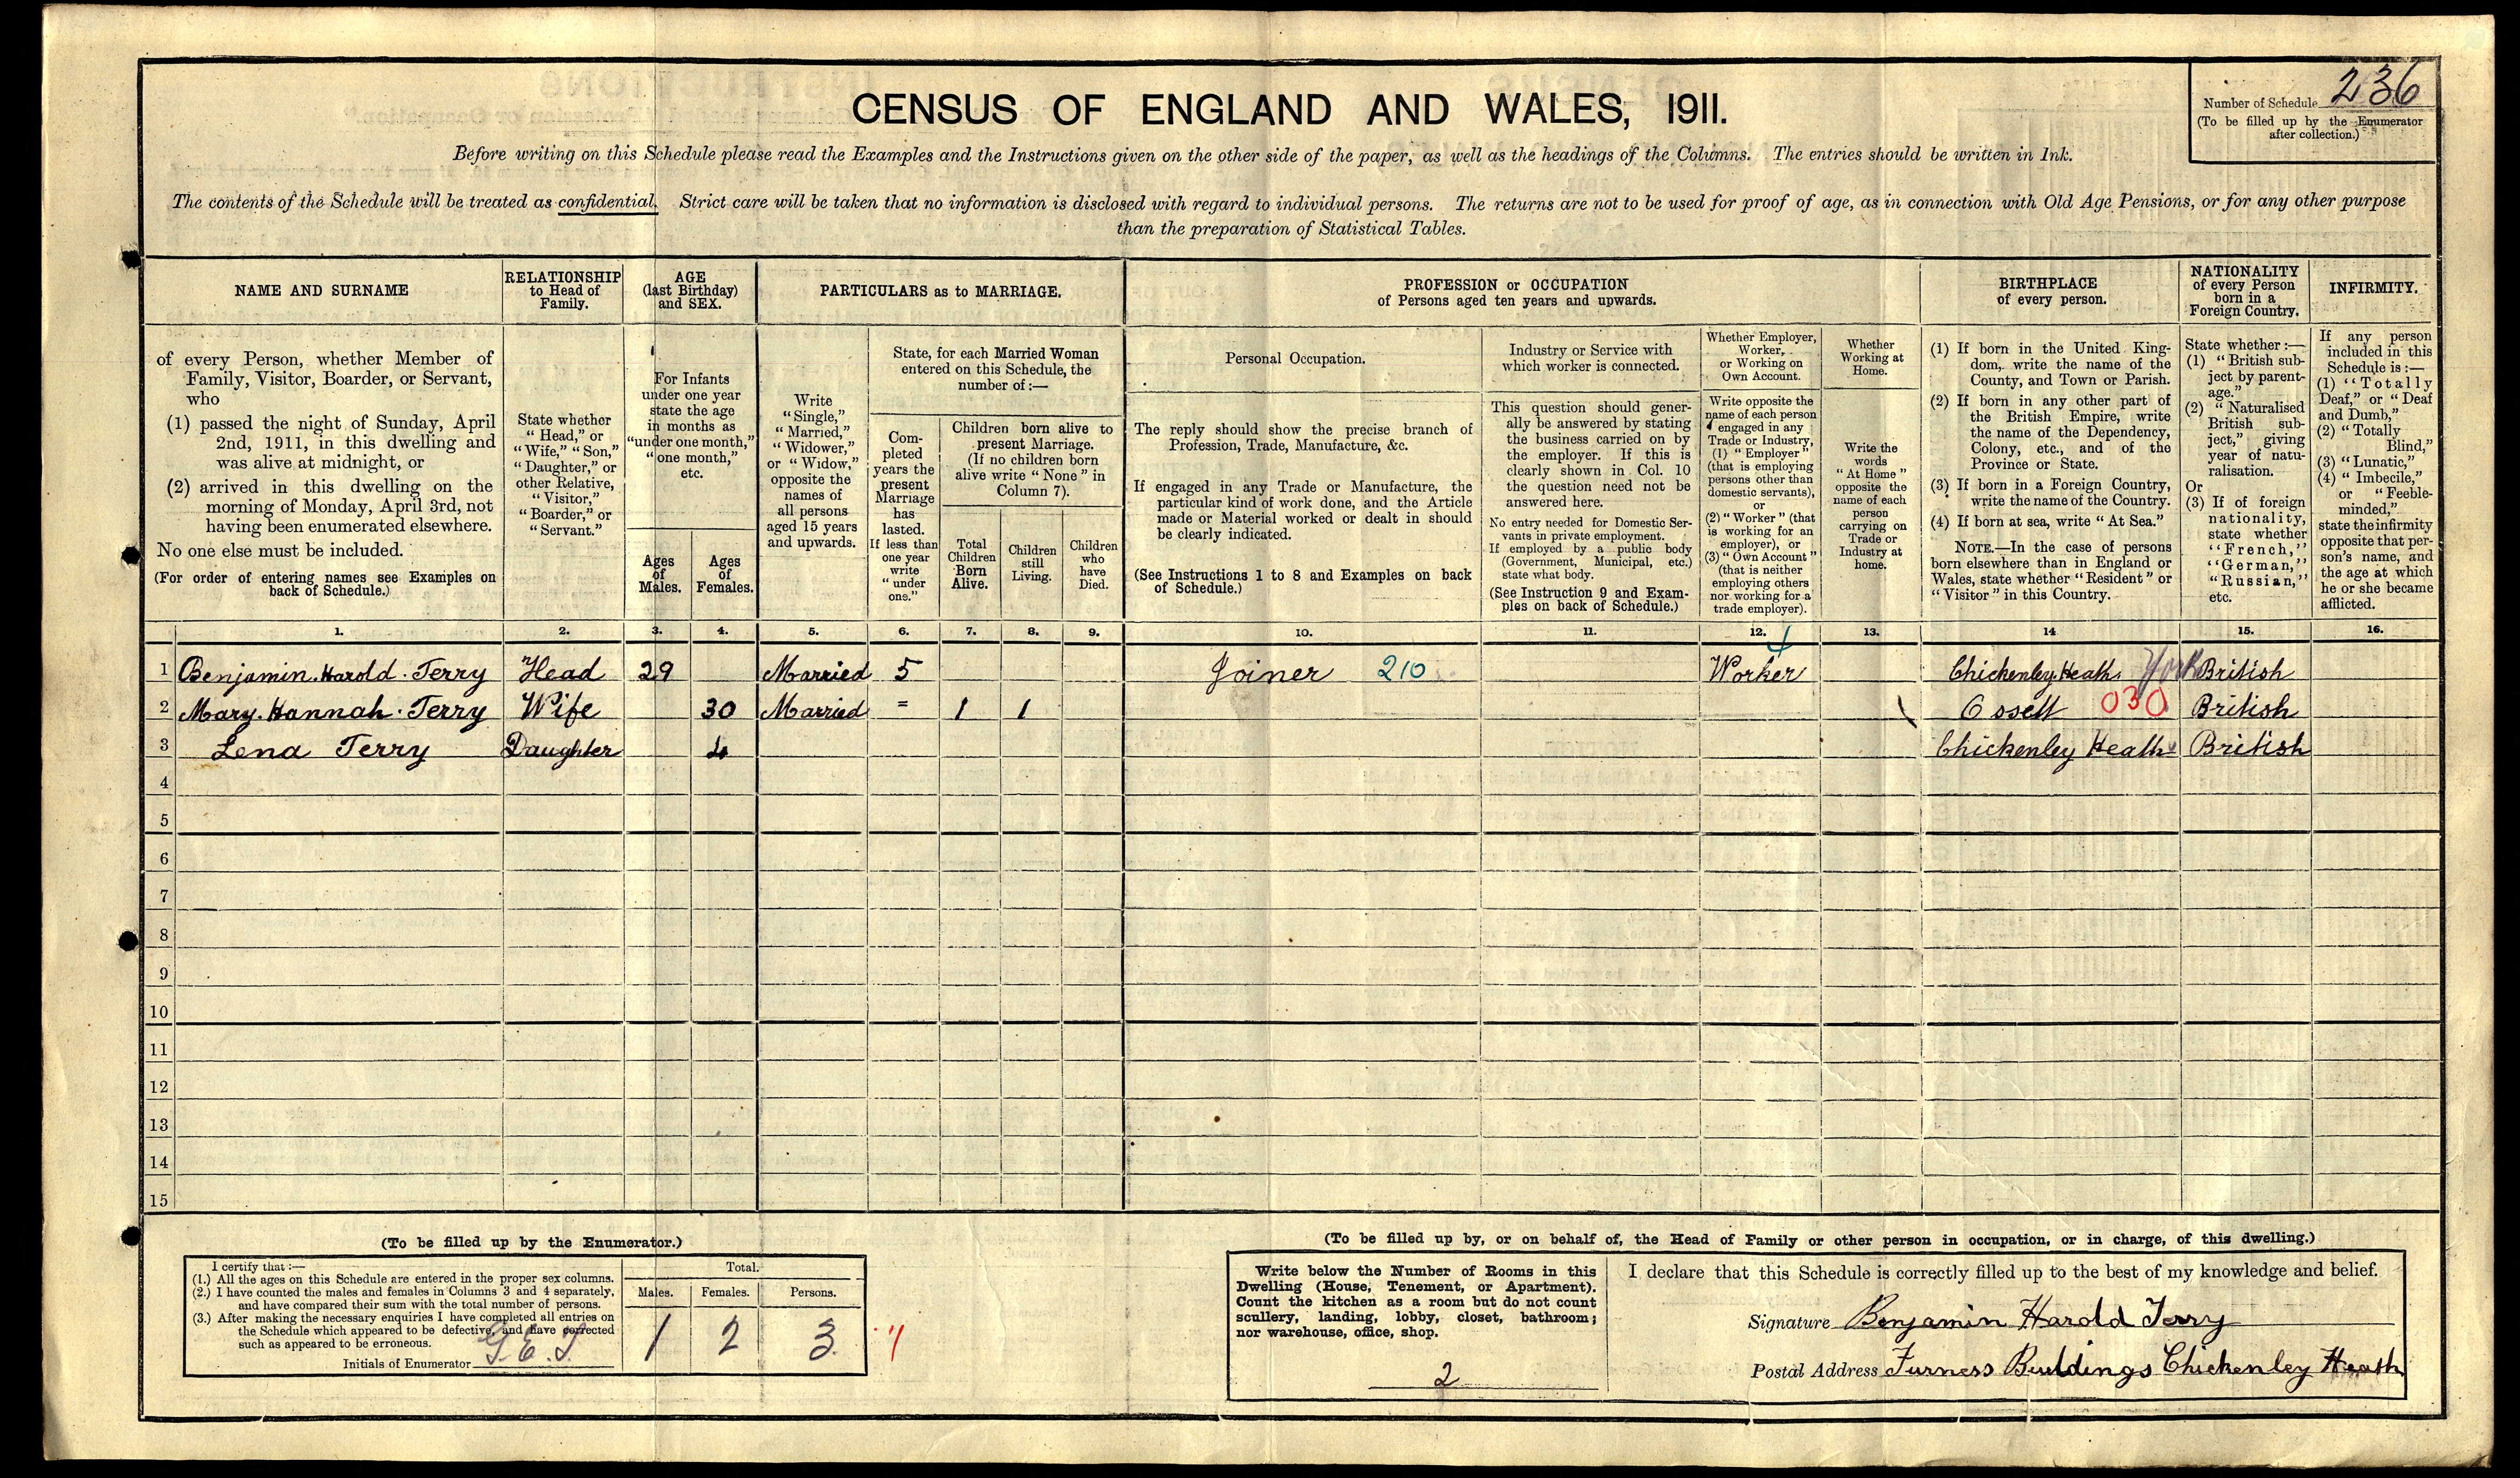 Number of Schedule 236
(To be filled up by the Enumerator
after collection.)
CENSUS OF ENGLAND AND WALES, 1911.
Before writing on this Schedule please read the Examples and the Instructions given on the other side of the paper, as well as the headings of the Columns. The entries should be written in Ink.
The contents of the Schedule will be treated as confidential. Strict care will be taken that no information is disclosed with regard to individual persons. The returns are not to be used for proof of age, as in connection with Old Age Pensions, or for any other purpose
than the preparation of Statistical Tables.
NAME AND SURNAME
of every Person, whether Member of
Family, Visitor, Boarder, or Servant,
who
(1) passed the night of Sunday, April
2nd, 1911, in this dwelling and
was alive at midnight, or
(2) arrived in this dwelling on the
morning of Monday, April 3rd, not
having been enumerated elsewhere.
No one else must be included.
(For order of entering names see Examples on
back of Schedule.)
RELATIONSHIP
to Head of
Family.
State whether
"Head," or
"Wife," "Son,"
"Daughter," or
other Relative,
"Visitor,"
"Boarder," or
"Servant."
AGE
(last Birthday)
and SEX.
For Infants
under one year
state the age
in months as
"under one month,"
"one month,"
etc.
Ages
of
Males.
Ages
of
Females.
PARTICULARS as to MARRIAGE.
Write
"Single,"
"Married,"
"Widower,"
or "Widow,"
opposite the
names of
all persons
aged 15 years
and upwards.
State, for each Married Woman
entered on this Schedule, the
number of:—
Com-
pleted
years the
present
Marriage
has
lasted.
If less than
one year
write
"under
one."
Children born alive to
present Marriage.
(If no children born
alive write "None" in
Column 7).
Total
Children
Born
Alive.
Children
still
Living.
Children
who
have
Died.
PROFESSION or OCCUPATION
of Persons aged ten years and upwards.
Personal Occupation.
The reply should show the precise branch of
Profession, Trade, Manufacture, &c.
If engaged in any Trade or Manufacture, the
particular kind of work done, and the Article
made or Material worked or dealt in should
be clearly indicated.
(See Instructions 1 to 8 and Examples on back
of Schedule.)
Industry or Service with
which worker is connected.
This question should gener-
ally be answered by stating
the business carried on by
the employer. If this is
clearly shown in Col. 10
the question need not be
answered here.
No entry needed for Domestic Ser-
vants in private employment.
If employed by a public body
(Government, Municipal, etc.)
state what body.
(See Instruction 9 and Exam-
ples on back of Schedule.)
Whether Employer,
Worker,
or Working on
Own Account.
Write opposite the
name of each person
engaged in any
Trade or Industry,
(1) "Employer"
(that is employing
persons other than
domestic servants),
or
(2) "Worker" (that
is working for an
employer), or
(3) "Own Account"
(that is neither
employing others
nor working for a
trade employer).
Whether
Working at
Home.
Write the
words
"At Home"
opposite the
name of each
person
carrying on
Trade or
Industry at
home.
BIRTHPLACE
of every person.
(1) If born in the United King-
dom, write the name of the
County, and Town or Parish.
(2) If born in any other part of
the British Empire, write
the name of the Dependency,
Colony, etc., and of the
Province or State.
(3) If born in a Foreign Country,
write the name of the Country.
(4) If born at sea, write "At Sea."
NOTE.—In the case of persons
born elsewhere than in England or
Wales, state whether "Resident" or
"Visitor" in this Country.
NATIONALITY
of every Person
born in a
Foreign Country.
State whether:—
(1) "British sub-
ject by parent-
age."
(2) "Naturalised
British sub-
ject," giving
year of natu-
ralisation.
Or
(3) If of foreign
nationality,
state whether
"French,"
"German,"
"Russian,"
etc.
INFIRMITY.
If any person
included in this
Schedule is:—
(1) "Totally
Deaf," or "Deaf
and Dumb,"
(2) "Totally
Blind,"
(3) "Lunatic,"
(4) "Imbecile,"
or "Feeble-
minded,"
state the infirmity
opposite that per-
son's name, and
the age at which
he or she became
afflicted.
1. 2. 3. 4. 5. 6. 7. 8. 9. 10. 11. 12. 13. 14 15. 16.
4
1 Benjamin Harold Terry Head 29 Married 5 Joiner 210 Worker Chickenley Heath York British
2 Mary Hannah Terry Wife 30 Married = 1 1 Ossett 030 British
3 Lena Terry Daughter 4 Chickenley Heath British
4
5
6
7
8
9
10
11
12
13
14
15
(To be filled up by the Enumerator.)
I certify that:—
(1.) All the ages on this Schedule are entered in the proper sex columns.
(2.) I have counted the males and females in Columns 3 and 4 separately,
and have compared their sum with the total number of persons.
(3.) After making the necessary enquiries I have completed all entries on
the Schedule which appeared to be defective, and have corrected
such as appeared to be erroneous.
Initials of Enumerator
Total.
Males. Females. Persons.
1 2 3
(To be filled up by, or on behalf of, the Head of Family or other person in occupation, or in charge, of this dwelling.)
Write below the Number of Rooms in this
Dwelling (House, Tenement, or Apartment).
Count the kitchen as a room but do not count
scullery, landing, lobby, closet, bathroom;
nor warehouse, office, shop.
2
I declare that this Schedule is correctly filled up to the best of my knowledge and belief.
Signature Benjamin Harold Terry
Postal Address Furness Buildings Chickenley Heath